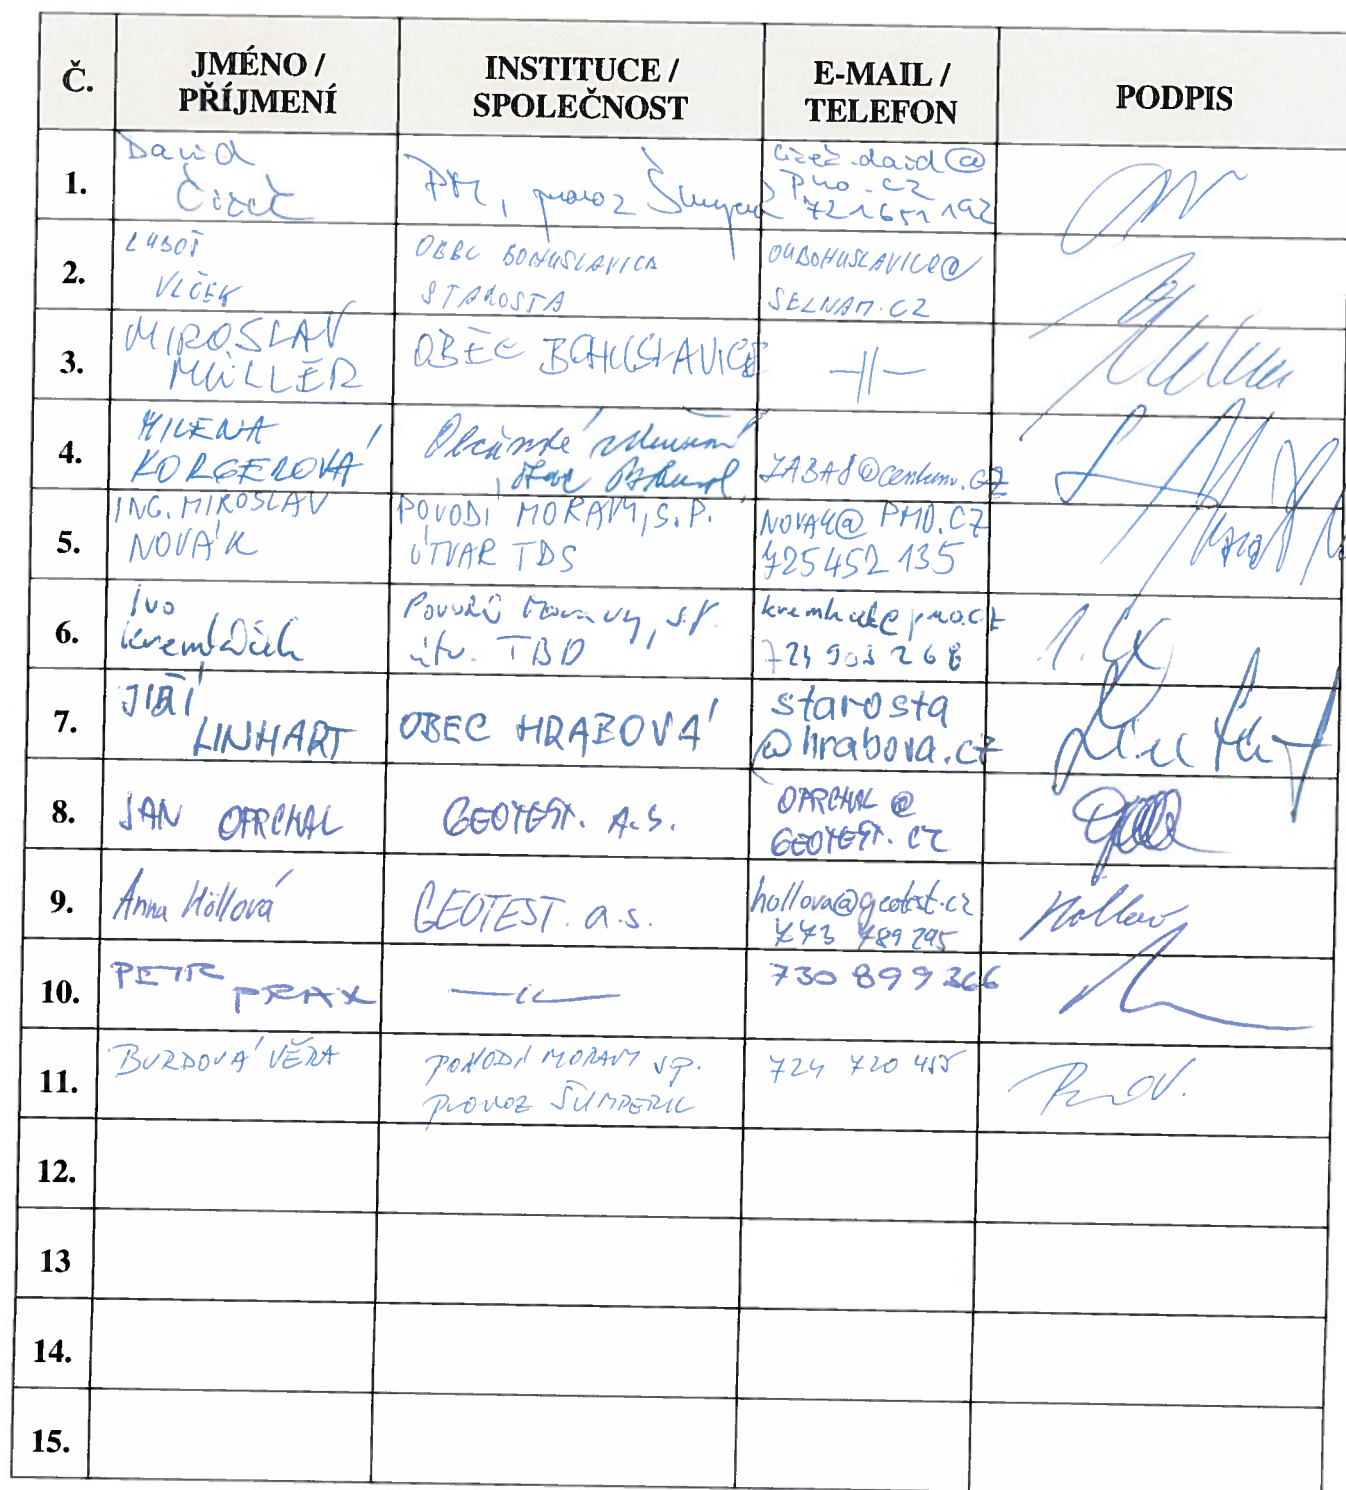 Č.
JMÉNO /
PŘÍJMENÍ
INSTITUCE /
SPOLEČNOST
E-MAIL /
TELEFON
PODPIS
1.
David
Čížek
PM, provoz Šumperk
cizek.david@
pmo.cz
721651192
2.
LUBOŠ
VLČEK
OBEC BOHUSLAVICE
STAROSTA
OUBOHUSLAVICE@
SEZNAM.CZ
3.
MIROSLAV
MÜLLER
OBEC BOHUSLAVICE
-||-
4.
MILENA
KORGEROVÁ
Občanské sdružení
ZABA8@centrum.cz
5.
ING. MIROSLAV
NOVÁK
POVODÍ MORAVY, S.P.
ÚTVAR TDS
NOVAK@PMO.CZ
725452 135
6.
Ivo
Kremláček
Povodí Moravy, s.p.
útv. TBD
@pmo.cz
7.
JIŘÍ
LINHART
OBEC HRABOVÁ
starosta
@hrabova.cz
8.
JAN OPRCHAL
GEOTEST. A.S.
OPRCHAL@
GEOTEST.CZ
9.
Anna Höllová
GEOTEST. a.s.
hollova@geotest.cz
773 789 295
10.
PETR
PRAX
-||-
730 899 366
11.
BURDOVÁ VĚRA
POVODÍ MORAVY s.p.
provoz ŠUMPERK
724 720 455
12.
13
14.
15.